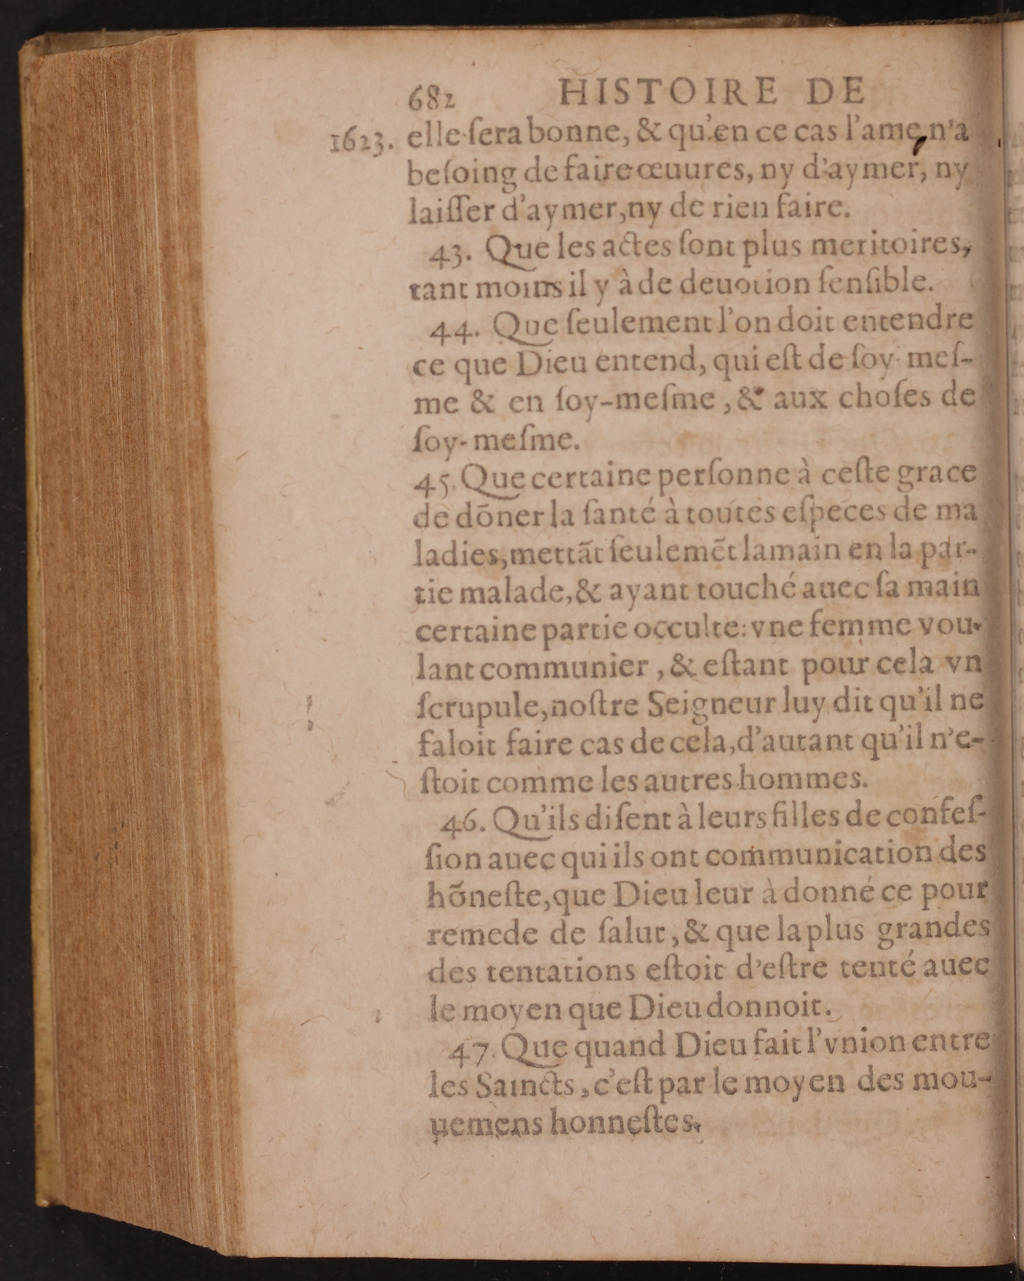 682 HISTOIRE DE
1623. elle ſera bonne, & qu'en ce cas l'ame, n'a
beſoing de faire œuures, ny d'aymer, ny
laiſſer d'aymer, ny de rien faire.
43. Que les actes ſont plus meritoires,
tant moins il y à de deuotion ſenſible.
44. Que ſeulement l'on doit entendre
ce que Dieu entend, qui eſt de ſoy meſ-
me & en ſoy-meſme, & aux choſes de
ſoy-meſme.
45. Que certaine perſonne à ceſte grace
de dõner la ſanté à toutes eſpeces de ma
ladies, mettãt ſeulemẽt lamain en la par-
tie malade, & ayant touché auec ſa main
certaine partie occulte: vne femme vou-
lant communier, & eſtant pour cela vn
ſcrupule, noſtre Seigneur luy dit qu'il ne
faloit faire cas de cela, d'autant qu'il n'e-
ſtoit comme les autres hommes.
46. Qu'ils diſent à leurs filles de confeſ-
ſion auec qui ils ont communication des
hõneſte, que Dieu leur à donné ce pour
remede de ſalut, & que la plus grandes
des tentations eſtoit d'eſtre tenté auec
le moyen que Dieu donnoit.
47. Que quand Dieu fait l'vnion entre
les Saincts, c'eſt par le moyen des mou-
uemens honneſtes.